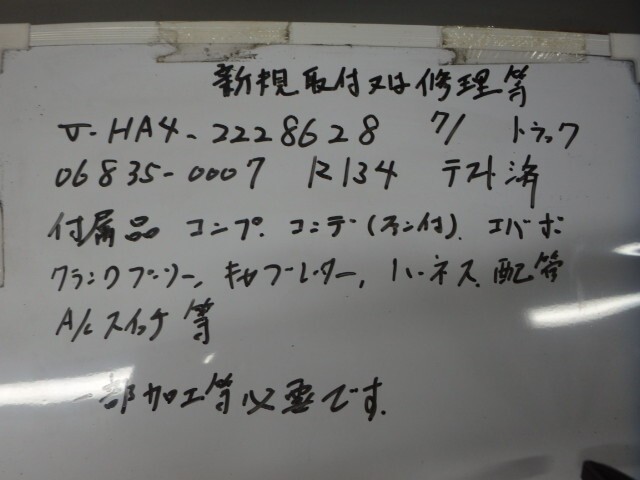 新規取付又は修理等
V-HA4-2228628 7/ トラック
06835-0007 R134 テスト済
付属品 コンプ. コンデ(ファン付). エバポ
クランクプーリー, キャブレター, ハーネス. 配管
A/Cスイッチ等
一部加工等必要です.